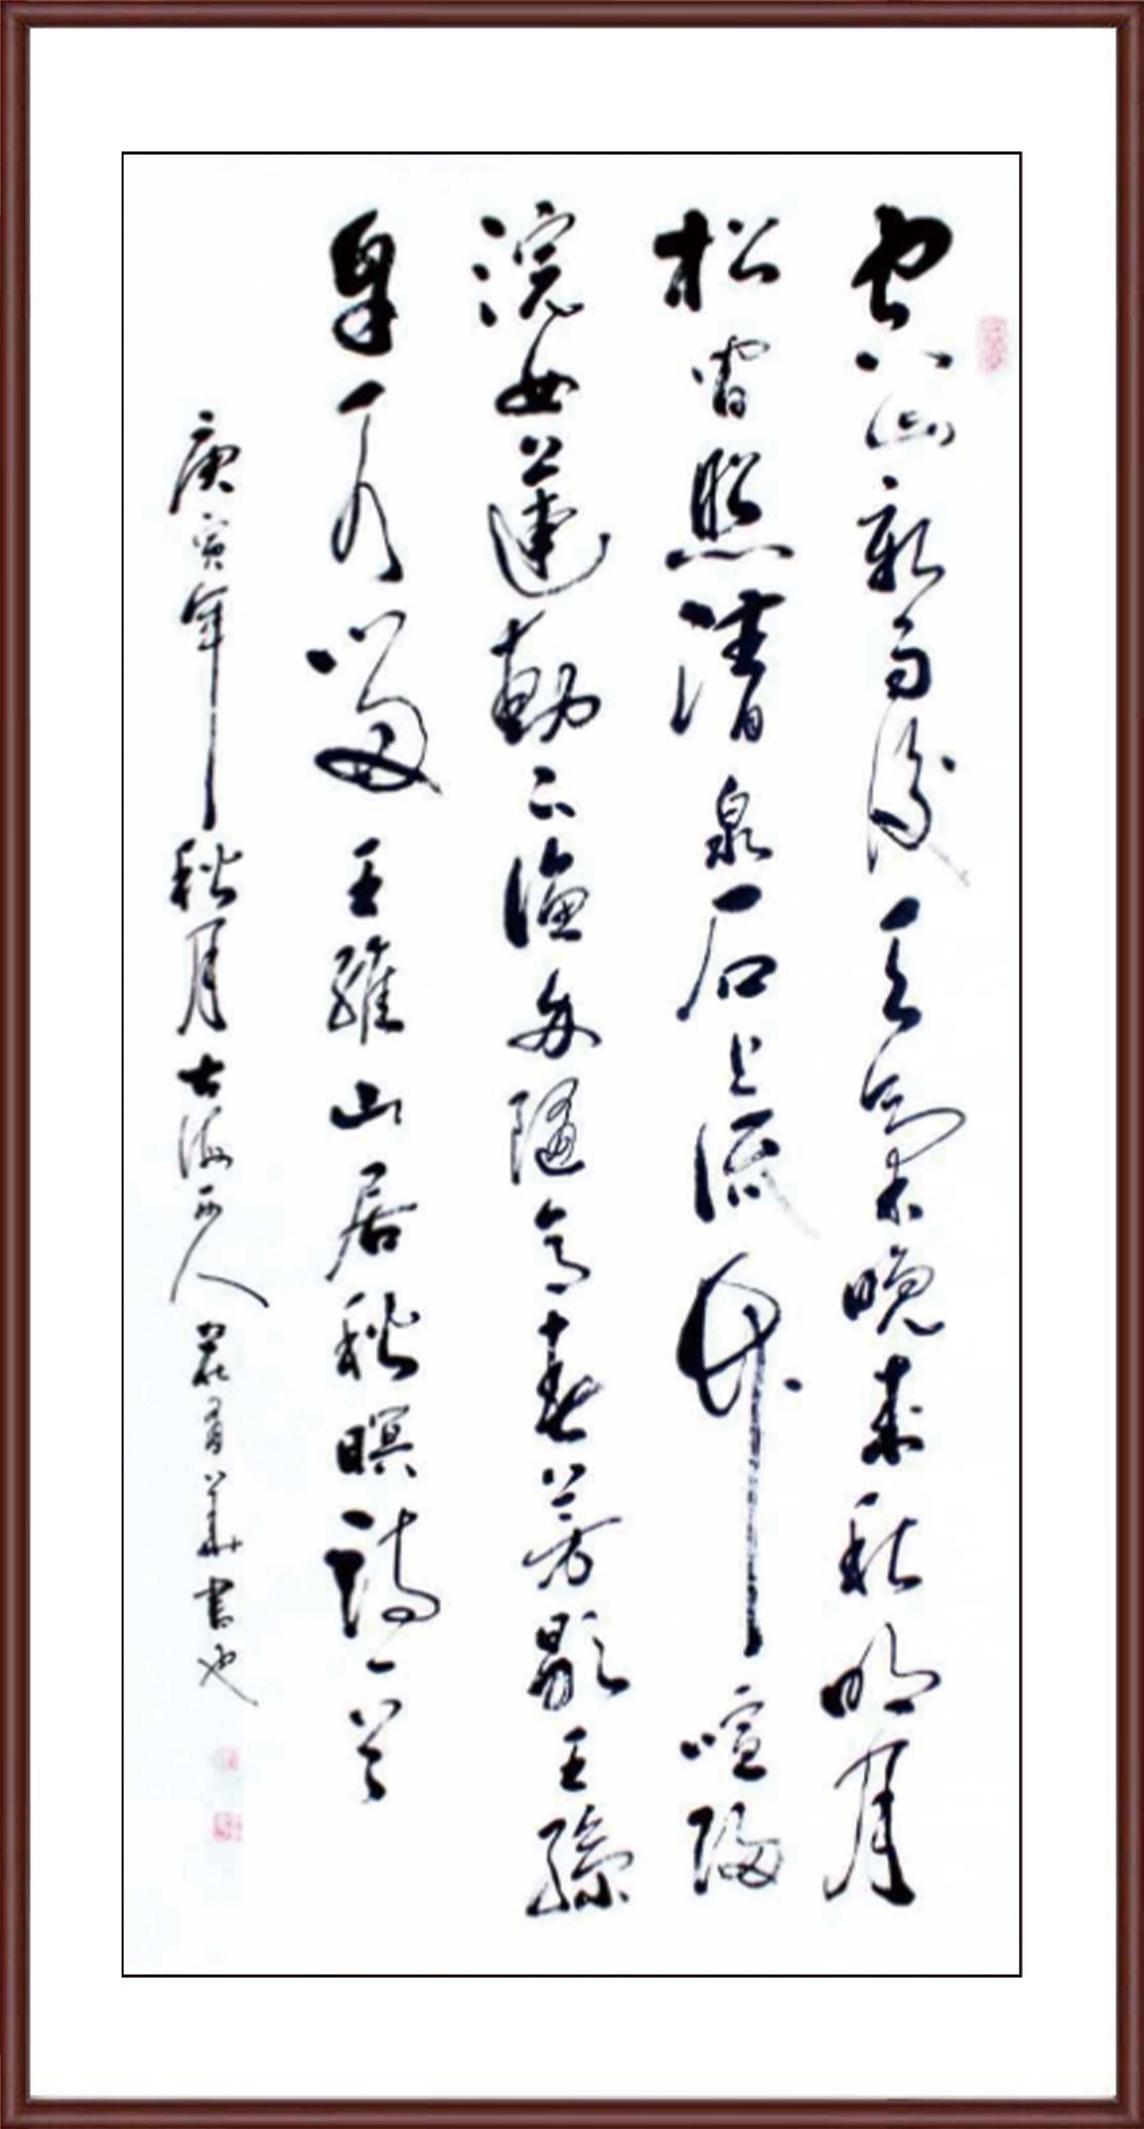 空山新雨後天氣晚來秋明月
松間照清泉石上流竹喧歸
浣女蓮動下漁舟隨意春芳歇王孫
自可留王維山居秋暝詩一首
庚寅年秋月古海西人書也